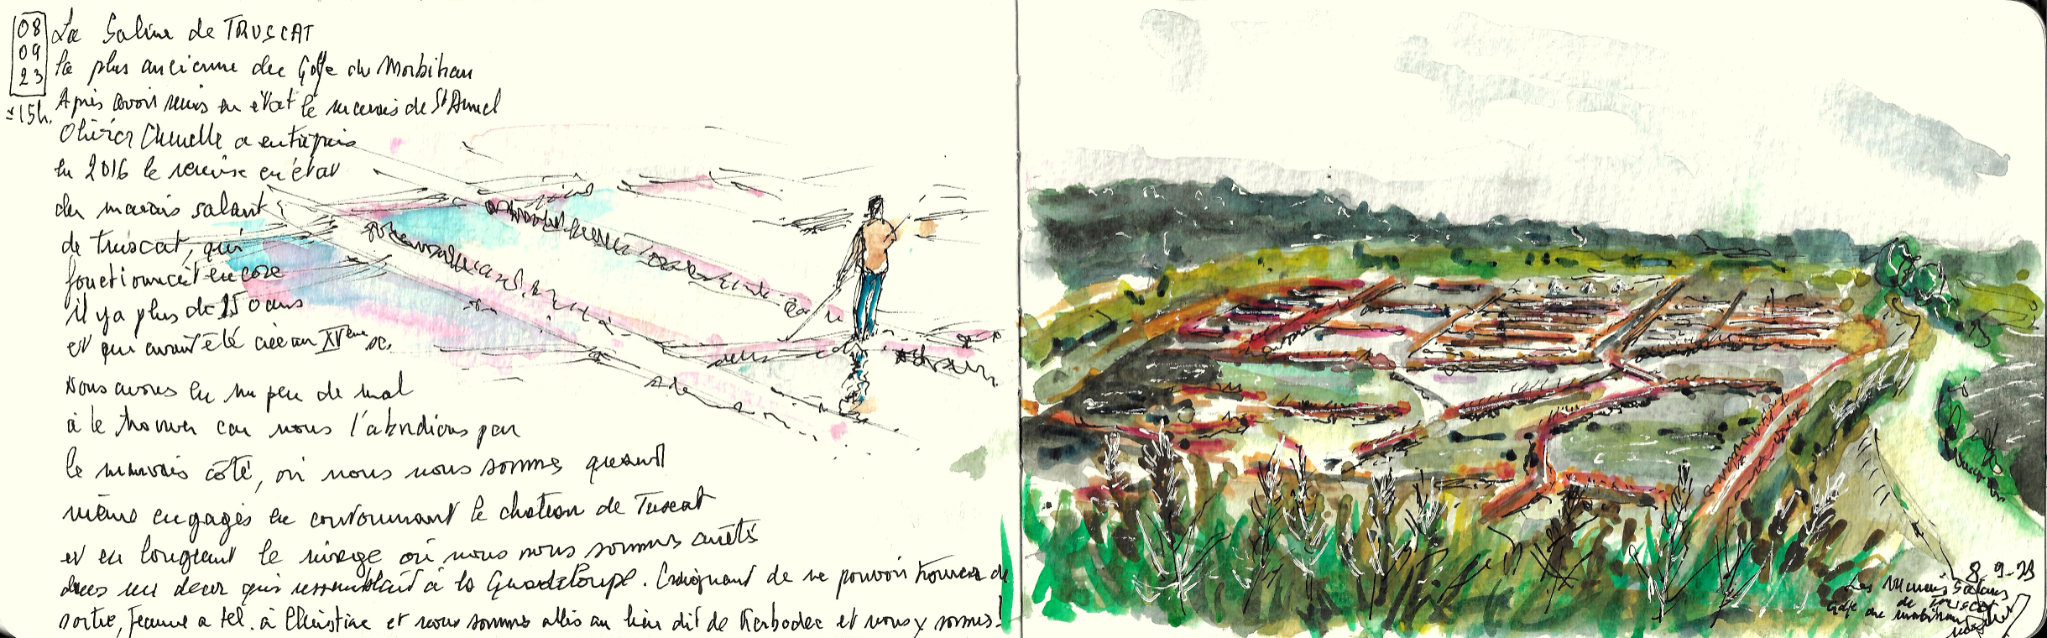 08
09
23
± 15h.
La Saline de TRUSCAT
la plus ancienne du Golfe du Morbihan
Après avoir remis en état le marais de St Armel
Olivier Chenelle a entrepris
en 2016 la remise en état
du marais salant
de Truscat, qui
fonctionnait encore
il y a plus de 150 ans
et qui avait été créé au XVème sc.
Nous avons eu un peu de mal
à le trouver car nous l'abordions par
le mauvais côté, où nous nous sommes quand
même engagés en contournant le château de Truscat
et en longeant le rivage où nous nous sommes arrêtés
dans un décor qui ressemblait à la Guadeloupe. Craignant de ne pouvoir trouver de
sortie, Jeanne a tél. à Christine et nous sommes allés au lieu dit de Kerbodec et nous y sommes!
8-9-23
Les Marais Salans
de Truscat
Golfe du Morbihan